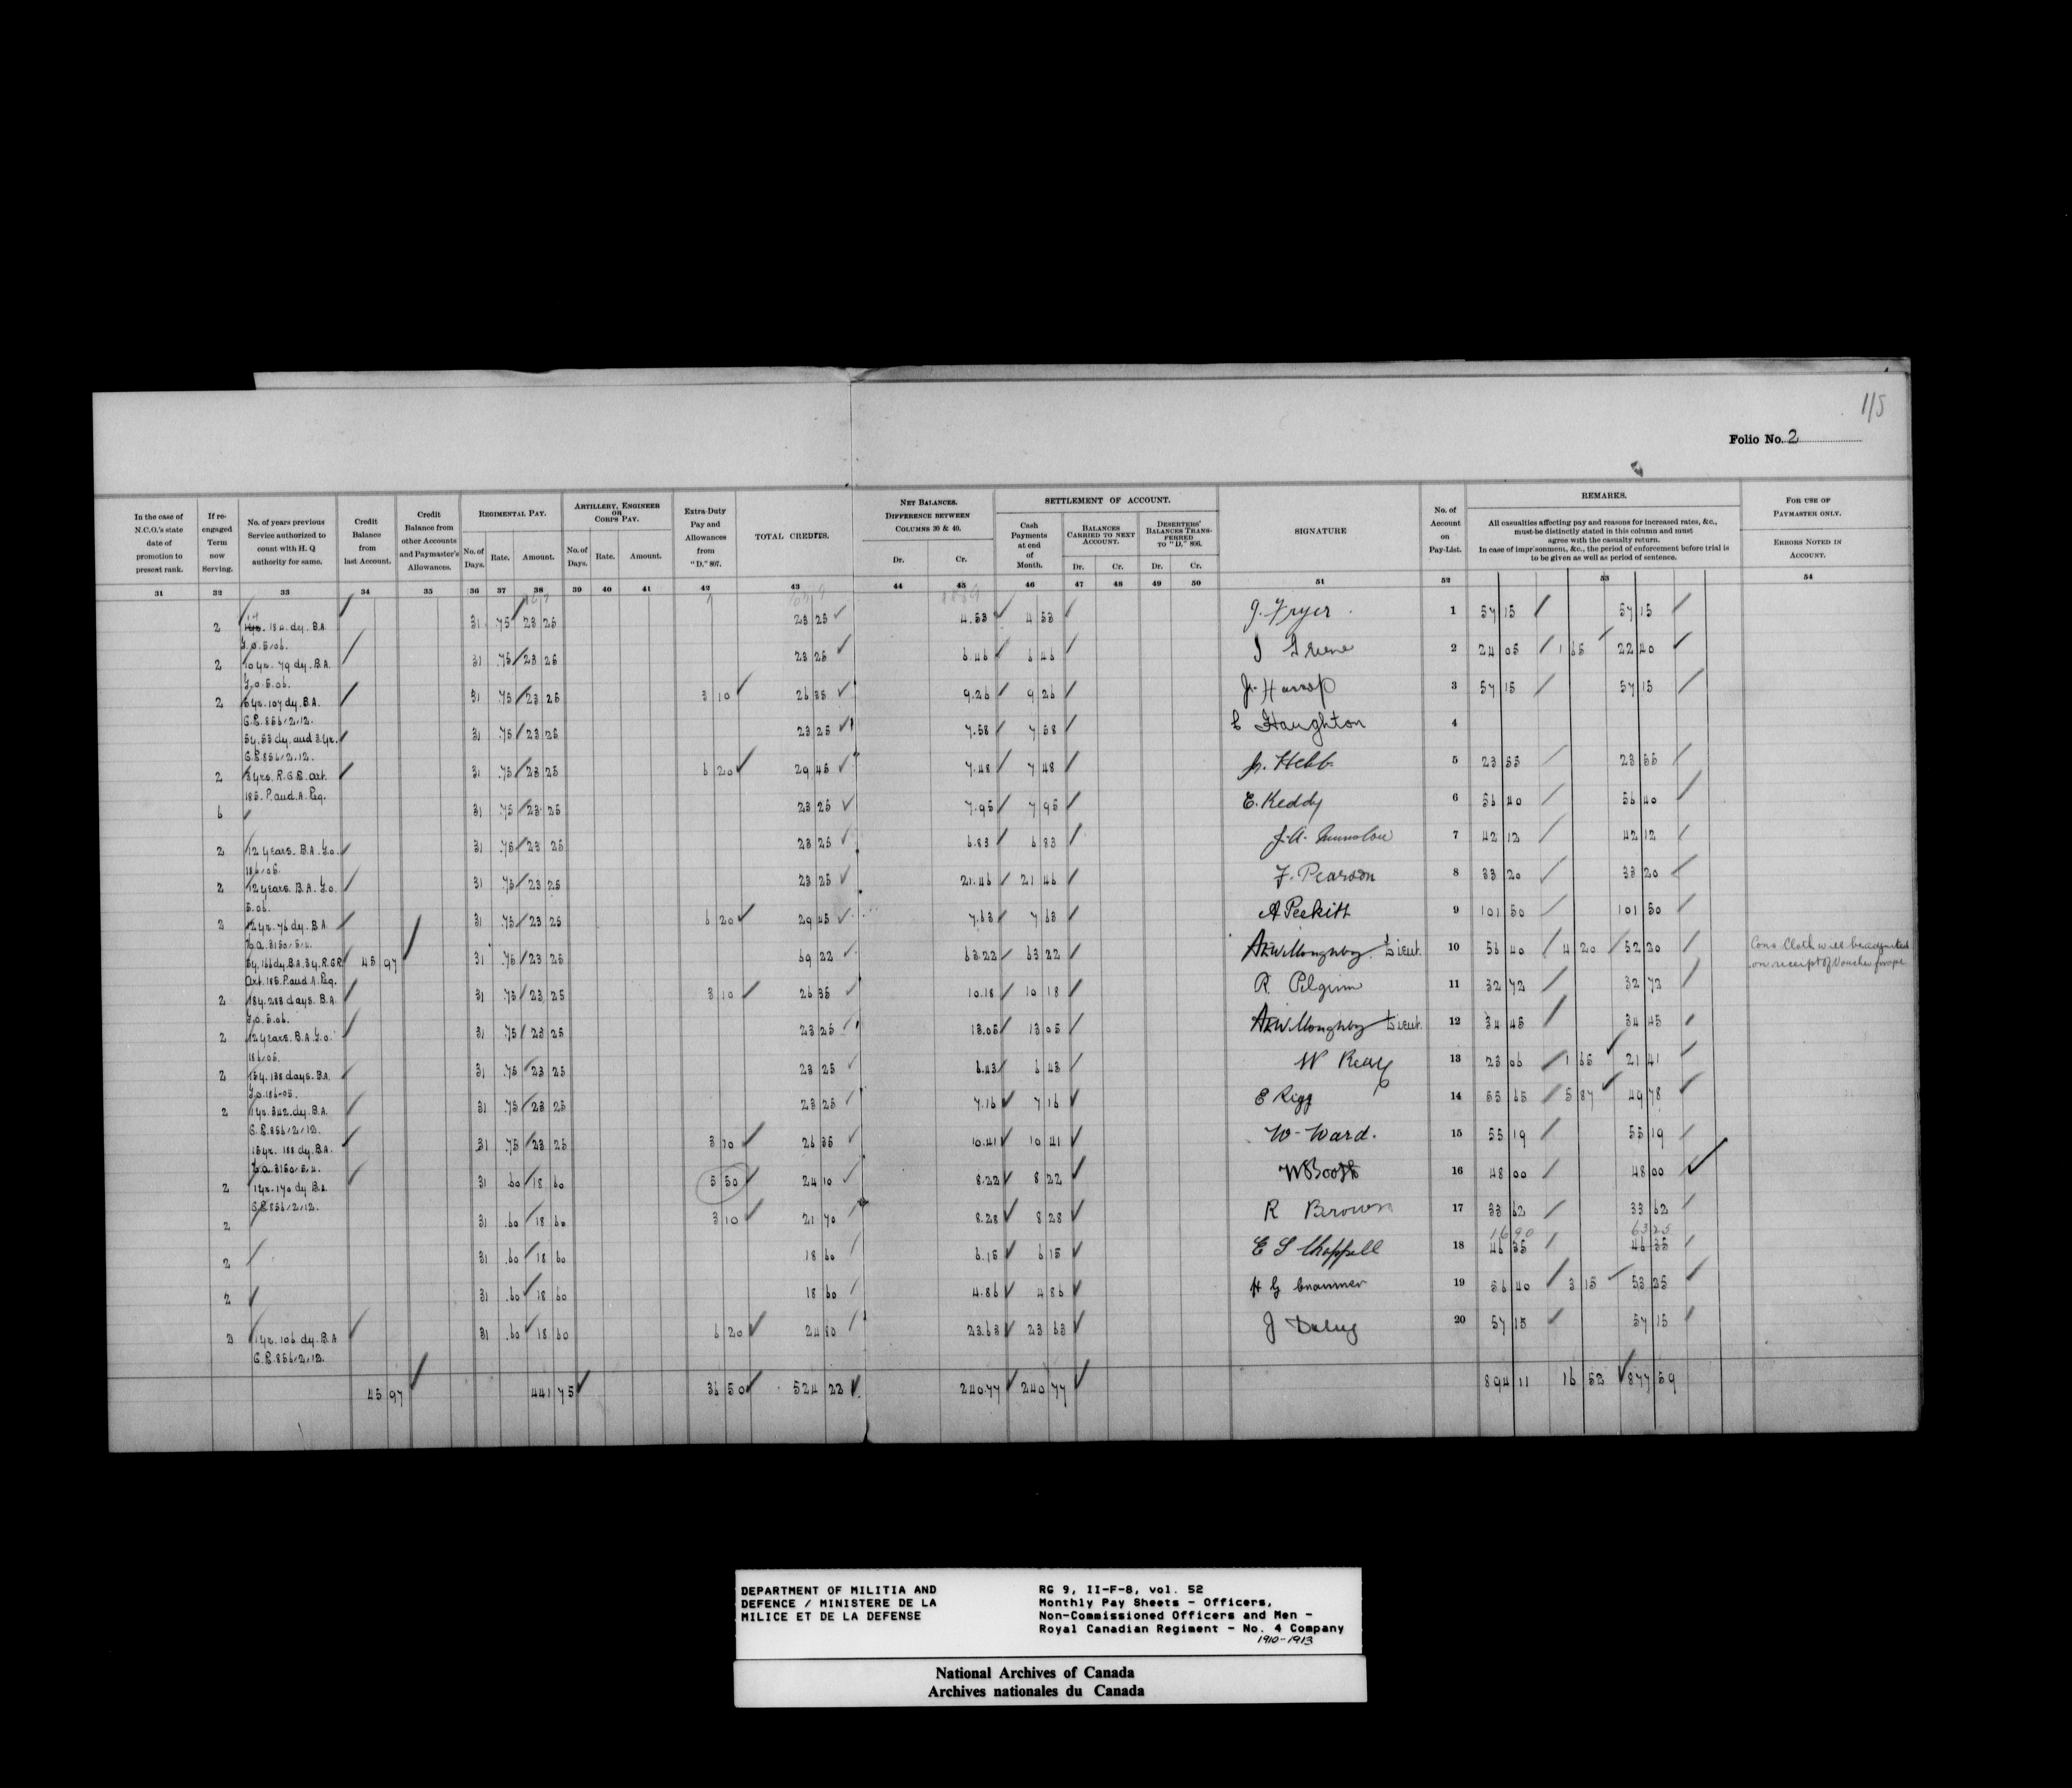 115
Folio No. 2
In the case of N.C.O.'s state date of promotion to present rank.
If re-engaged Term now Serving.
No. of years previous Service authorized to count with H. Q authority for same.
Credit Balance from last Account.
Credit Balance from other Accounts and Paymaster's Allowances.
REGIMENTAL PAY.
No. of Days. Rate. Amount.
ARTILLERY, ENGINEER OR CORPS PAY.
No. of Days. Rate. Amount.
Extra-Duty Pay and Allowances from "D." 807.
TOTAL CREDITS.
NET BALANCES. DIFFERENCE BETWEEN COLUMNS 30 & 40.
Dr. Cr.
SETTLEMENT OF ACCOUNT.
Cash Payments at end of Month.
BALANCES CARRIED TO NEXT ACCOUNT.
Dr. Cr.
DESERTERS' BALANCES TRANSFERRED TO "D." 806.
Dr. Cr.
SIGNATURE
No. of Account on Pay-List.
REMARKS.
All casualties affecting pay and reasons for increased rates, &c., must be distinctly stated in this column and must agree with the casualty return.
In case of imprisonment, &c., the period of enforcement before trial is to be given as well as period of sentence.
FOR USE OF PAYMASTER ONLY.
ERRORS NOTED IN ACCOUNT.
31 32 33 34 35 36 37 38 39 40 41 42 43 44 45 46 47 48 49 50 51 52 53 54
2 184 dy. B.A. 31 .75 23 25 23 25 4.53 4 53 J. Fryer 1 57 15 57 15
G.O. 5/06.
2 10 yr. 79 dy. B.A. 31 .75 23 25 23 25 6.46 6 46 Greene 2 24 05 1 65 22 40
G.O. 5.06.
2 6 yr. 107 dy. B.A. 31 .75 23 25 3 10 26 35 9.26 9 26 Harrop 3 57 15 57 15
C.R. 856/2/12.
5 y. 53 dy. and 3 yr. 31 .75 23 25 23 25 7.58 7 58 Haughton 4
C.R. 856/2/12.
2 3 yrs. R.G.R. Art. 31 .75 23 25 6 20 29 45 7.48 7 48 Hebb 5 23 55 23 55
185. P. and A. Reg.
6 31 .75 23 25 23 25 7.95 7 95 E. Keddy 6 56 40 56 40
2 12 years. B.A. G.O. 31 .75 23 25 23 25 6.83 6 83 J.A. 7 42 12 42 12
186/05.
2 12 years. B.A. G.O. 31 .75 23 25 23 25 21.46 21 46 F. Pearson 8 33 20 33 20
5.06.
2 12 yr. 76 dy. B.A. 31 .75 23 25 6 20 29 45 7.63 7 63 A Peckitt 9 101 50 101 50
3150/5/4.
5 y. 166 dy. B.A. 3 y. R.G.R 45 97 31 .75 23 25 69 22 63.22 63 22 Willoughby Lieut. 10 56 40 4 20 52 20 Cons Cloth will be adjusted
Art. 185. P. and A. Reg. on receipt of Voucher
2 18 y. 288 days. B.A. 31 .75 23 25 3 10 26 35 10.18 10 18 R. Pilgrim 11 32 72 32 72
G.O. 5.06.
2 12 years. B.A. G.O. 31 .75 23 25 23 25 13.05 13 05 Willoughby Lieut. 12 34 45 34 45
186/05.
2 15 y. 138 days. B.A. 31 .75 23 25 23 25 6.43 6 43 W Reay 13 23 06 1 65 21 41
G.O. 186-05.
2 1 yr. 342 dy. B.A. 31 .75 23 25 23 25 7.16 7 16 E Rigg 14 55 65 5 87 49 78
C.R. 856/2/12.
15 yr. 188 dy. B.A. 31 .75 23 25 3 10 26 35 10.41 10 41 W. Ward. 15 55 19 55 19
3150/5/4.
2 1 yr. 170 dy B.A. 31 .60 18 60 5 50 24 10 8.22 8 22 W Booth 16 48 00 48 00
C.R. 856/2/12.
2 31 .60 18 60 3 10 21 70 8.28 8 28 R Brown 17 33 62 33 62
2 31 .60 18 60 18 60 6.15 6 15 E S Chappell 18 46 35 46 35
2 31 .60 18 60 18 60 4.86 4 86 H G Cranmer 19 56 40 3 15 53 25
2 1 yr. 106 dy. B.A 31 .60 18 60 6 20 24 80 23.63 23 63 J 20 57 15 57 15
C.R. 856/2/12.
45 97 441 75 36 50 524 22 240.77 240 77 894 11 16 52 877 59
DEPARTMENT OF MILITIA AND
DEFENCE / MINISTERE DE LA
MILICE ET DE LA DEFENSE
RG 9, II-F-8, vol. 52
Monthly Pay Sheets - Officers,
Non-Commissioned Officers and Men -
Royal Canadian Regiment - No. 4 Company
1910-1913
National Archives of Canada
Archives nationales du Canada